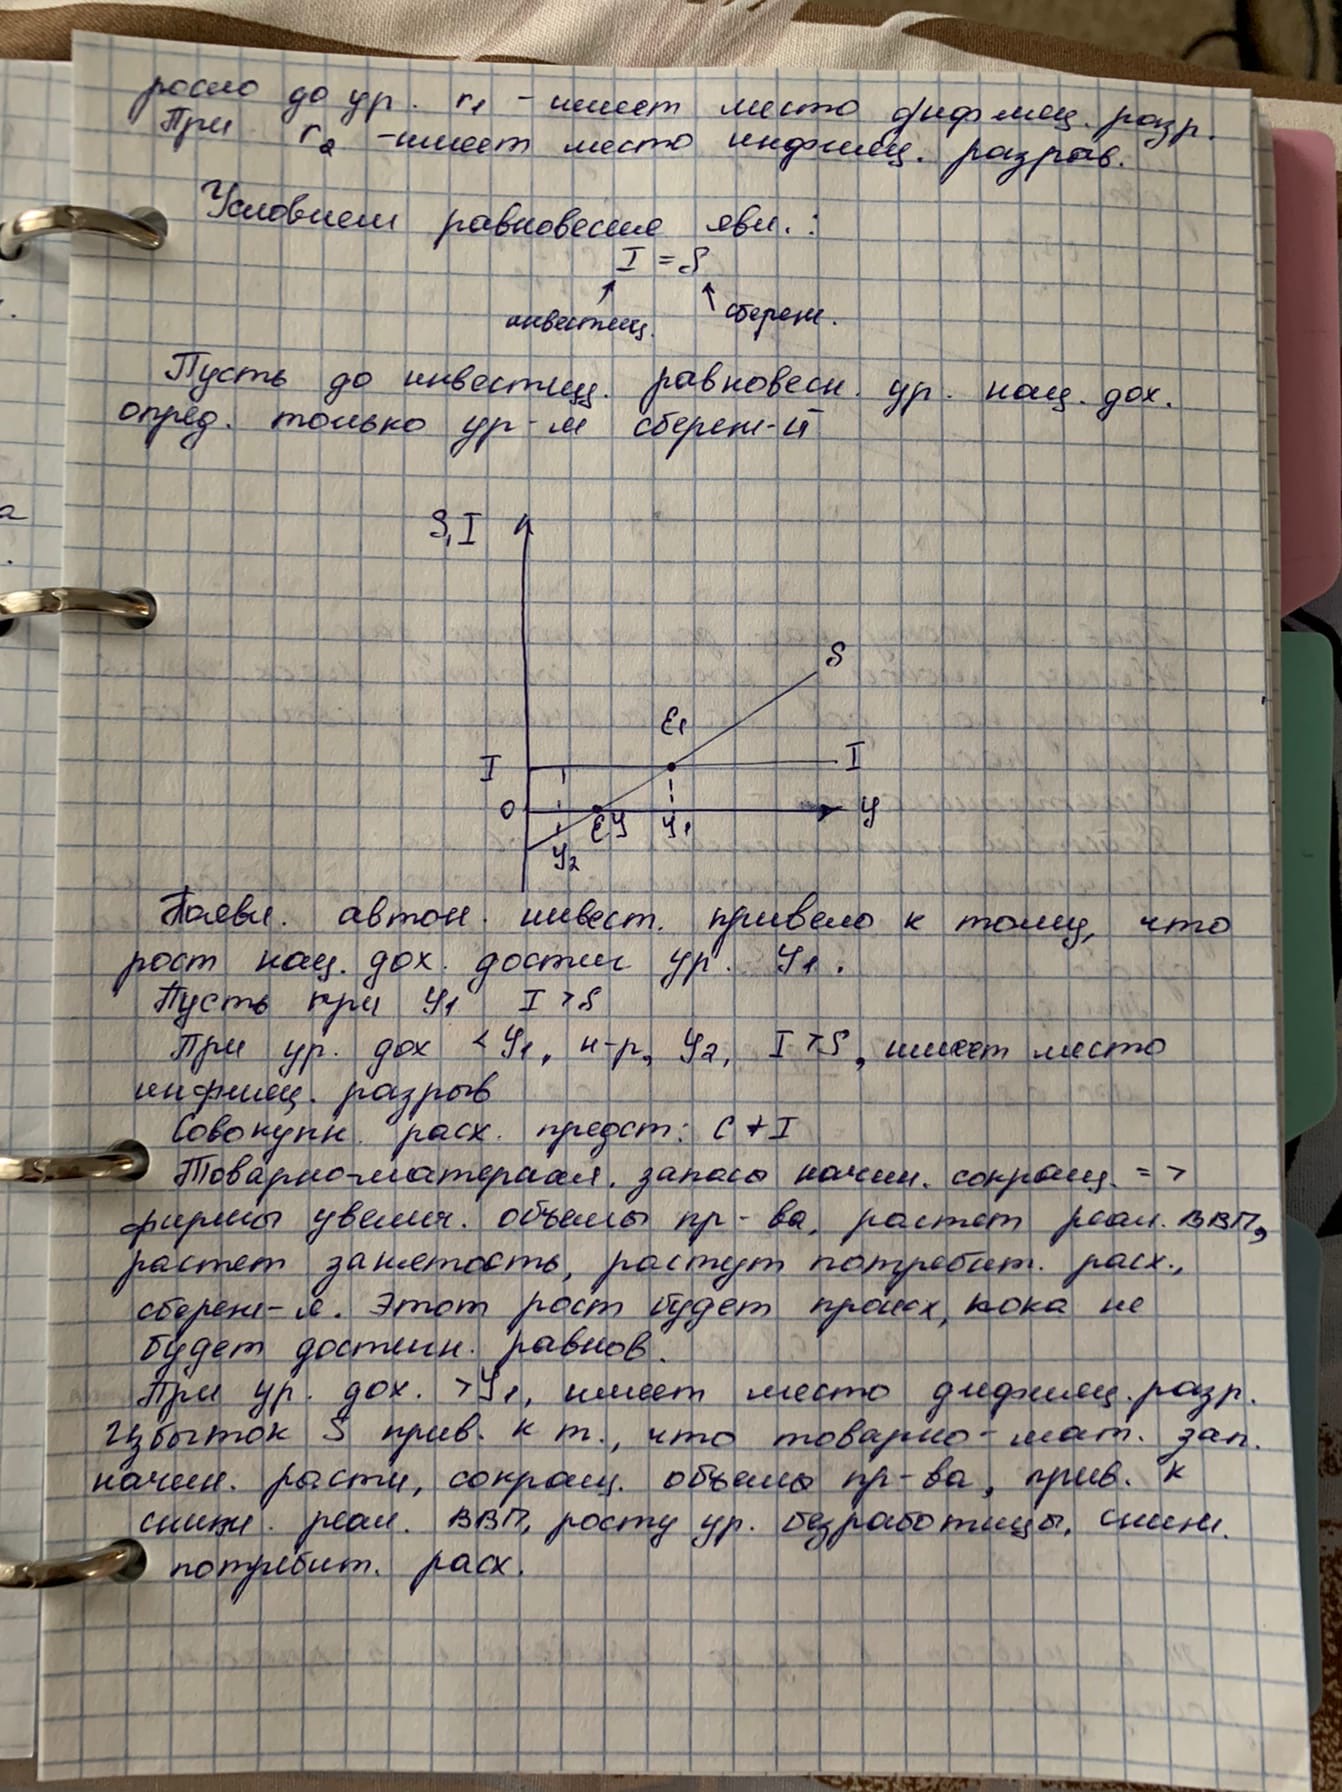 росло до ур. r₁ - имеет место дифляц. разр.
При r₂ - имеет место инфляц. разрыв.
Условием равновесия явл. :
I = S
инвестиц. сбереж.
Пусть до инвестиц. равновесн. ур. нац. дох.
опред. только ур-м сбереж-й
S, I
S
E₁
I I
0 E У У₁ У
У₂
Появл. автон. инвест. привело к тому, что
рост нац. дох. достиг ур. У₁.
Пусть при У₁ I > S
При ур. дох < У₁, н-р, У₂, I > S, имеет место
инфляц. разрыв
Совокупн. расх. предст: C + I
Товарно-материал. запасы начин. сокращ. =>
фирмы увелич. объемы пр-ва, растет реал. ВВП,
растет занятость, растут потребит. расх.,
сбереж-я. Этот рост будет происх, пока не
будет достигн. равнов.
При ур. дох. > У₁, имеет место дифляц. разр.
Избыток S прив. к т., что товарно-мат. зап.
начин. расти, сокращ. объемы пр-ва, прив. к
сниж. реал. ВВП, росту ур. безработицы, сниж.
потребит. расх.